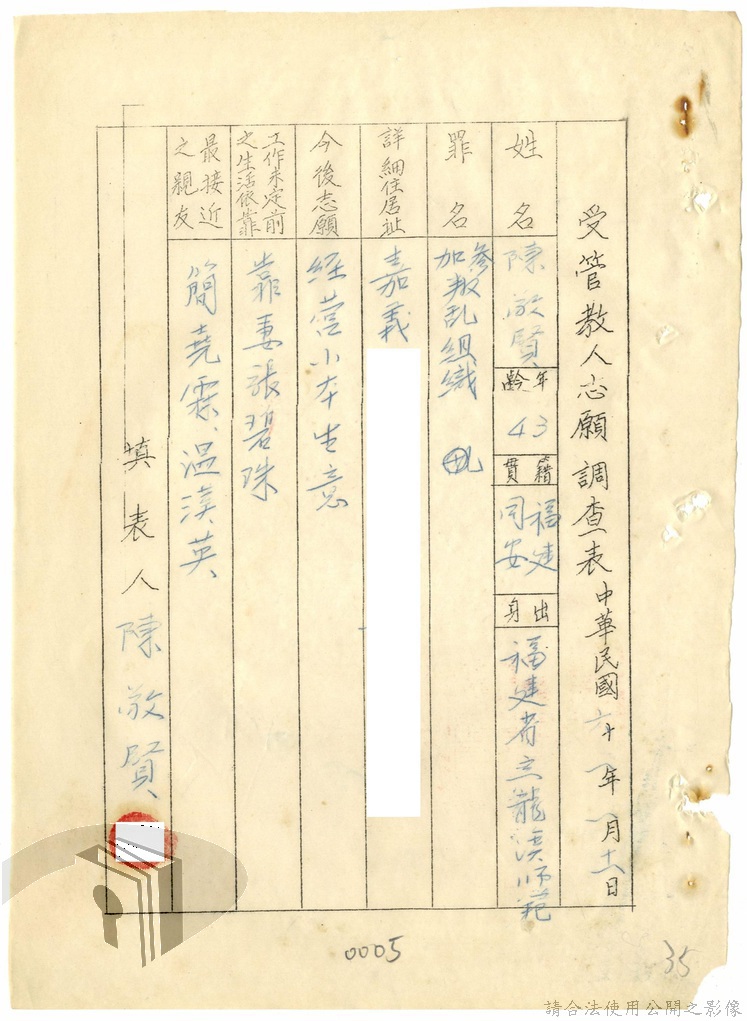 受管教人志願調查表中華民國六十一年一月十六日
姓名
陳敬賢
年齡
43
籍貫
福建
同安
出身
福建省立龍溪師範
罪名
參加叛乱組織
詳細住居址
嘉義
今後志願
経营小本生意
工作未定前
之生活依靠
靠妻張碧珠
最接近
之親友
簡堯霖、温漢英
填表人陳敬賢
0005
35
請合法使用公開之影像